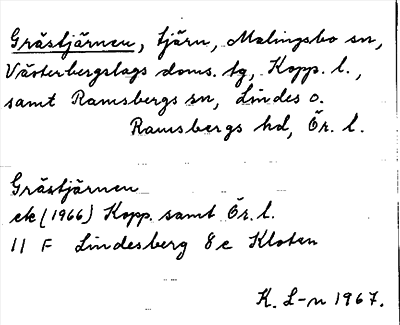 Grästjärnen, tjärn, Malingsbo sn,
Västerbergslags doms. tg, Kopp. l.,
samt Ramsbergs sn, Lindes o.
Ramsbergs hd, Ör. l.
Grästjärnen
ek (1966) Kopp. samt Ör. l.
11 F Lindesberg 8 e Kloten
K. L-n 1967.